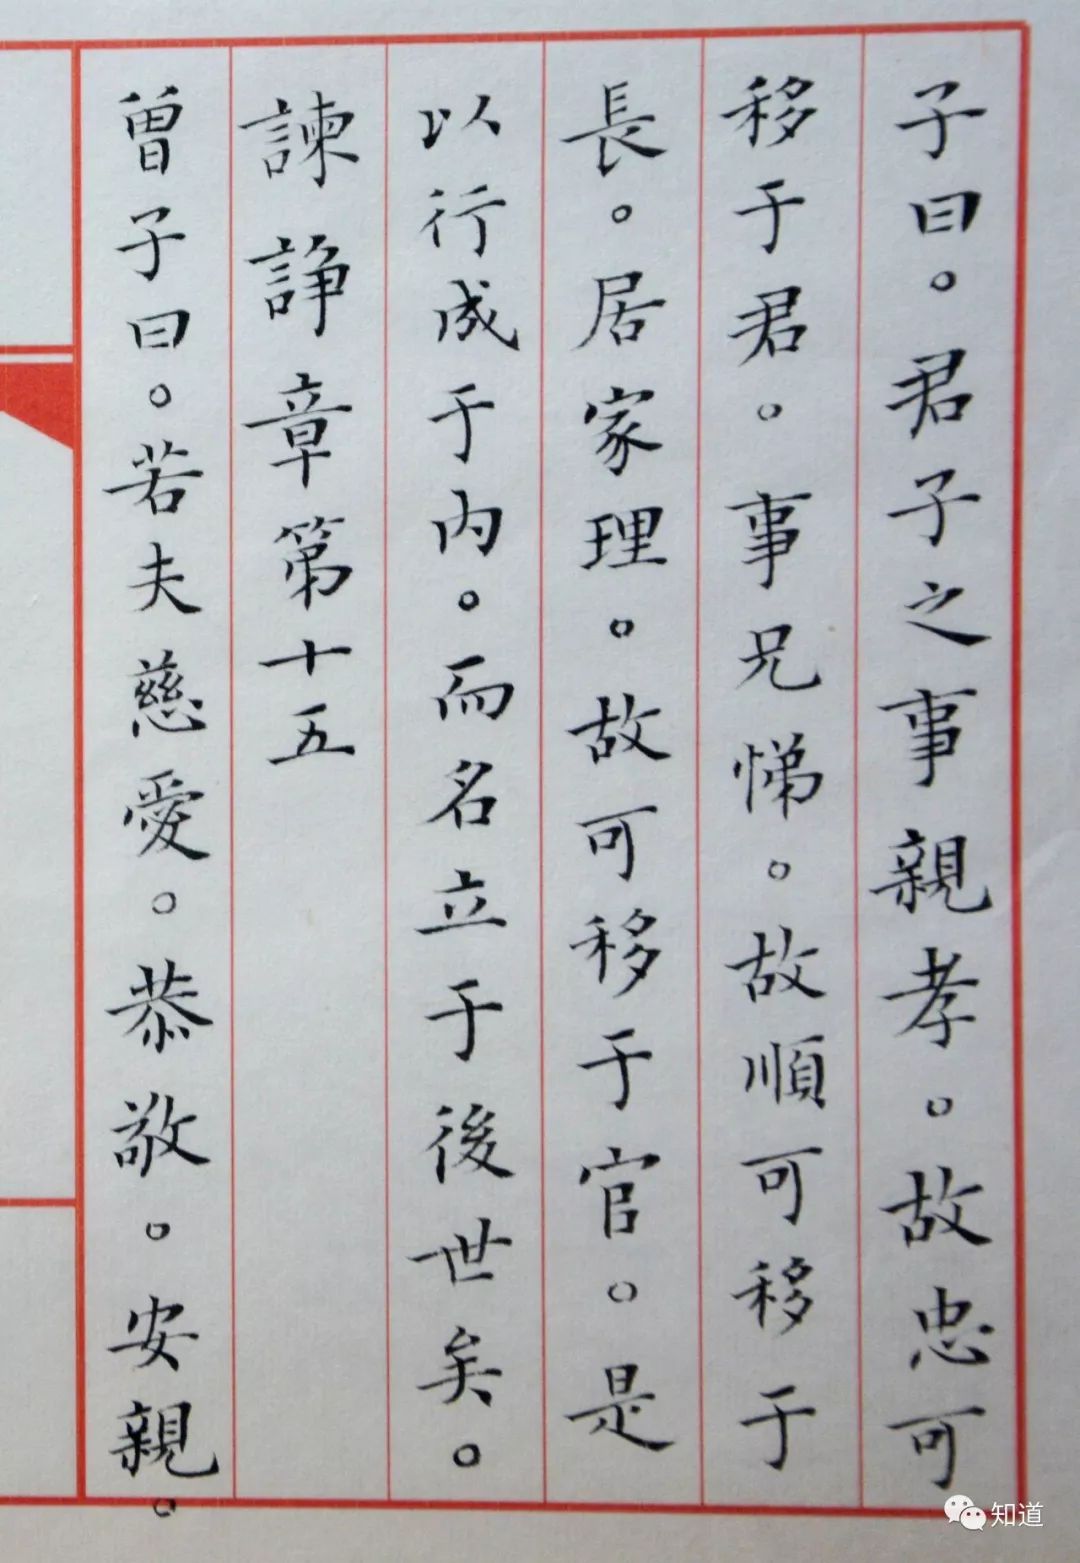 子曰。君子之事親孝。故忠可
移于君。事兄悌。故順可移于
長。居家理。故可移于官。是
以行成于内。而名立于後世矣。
諫諍章第十五
曾子曰。若夫慈愛。恭敬。安親。
知道